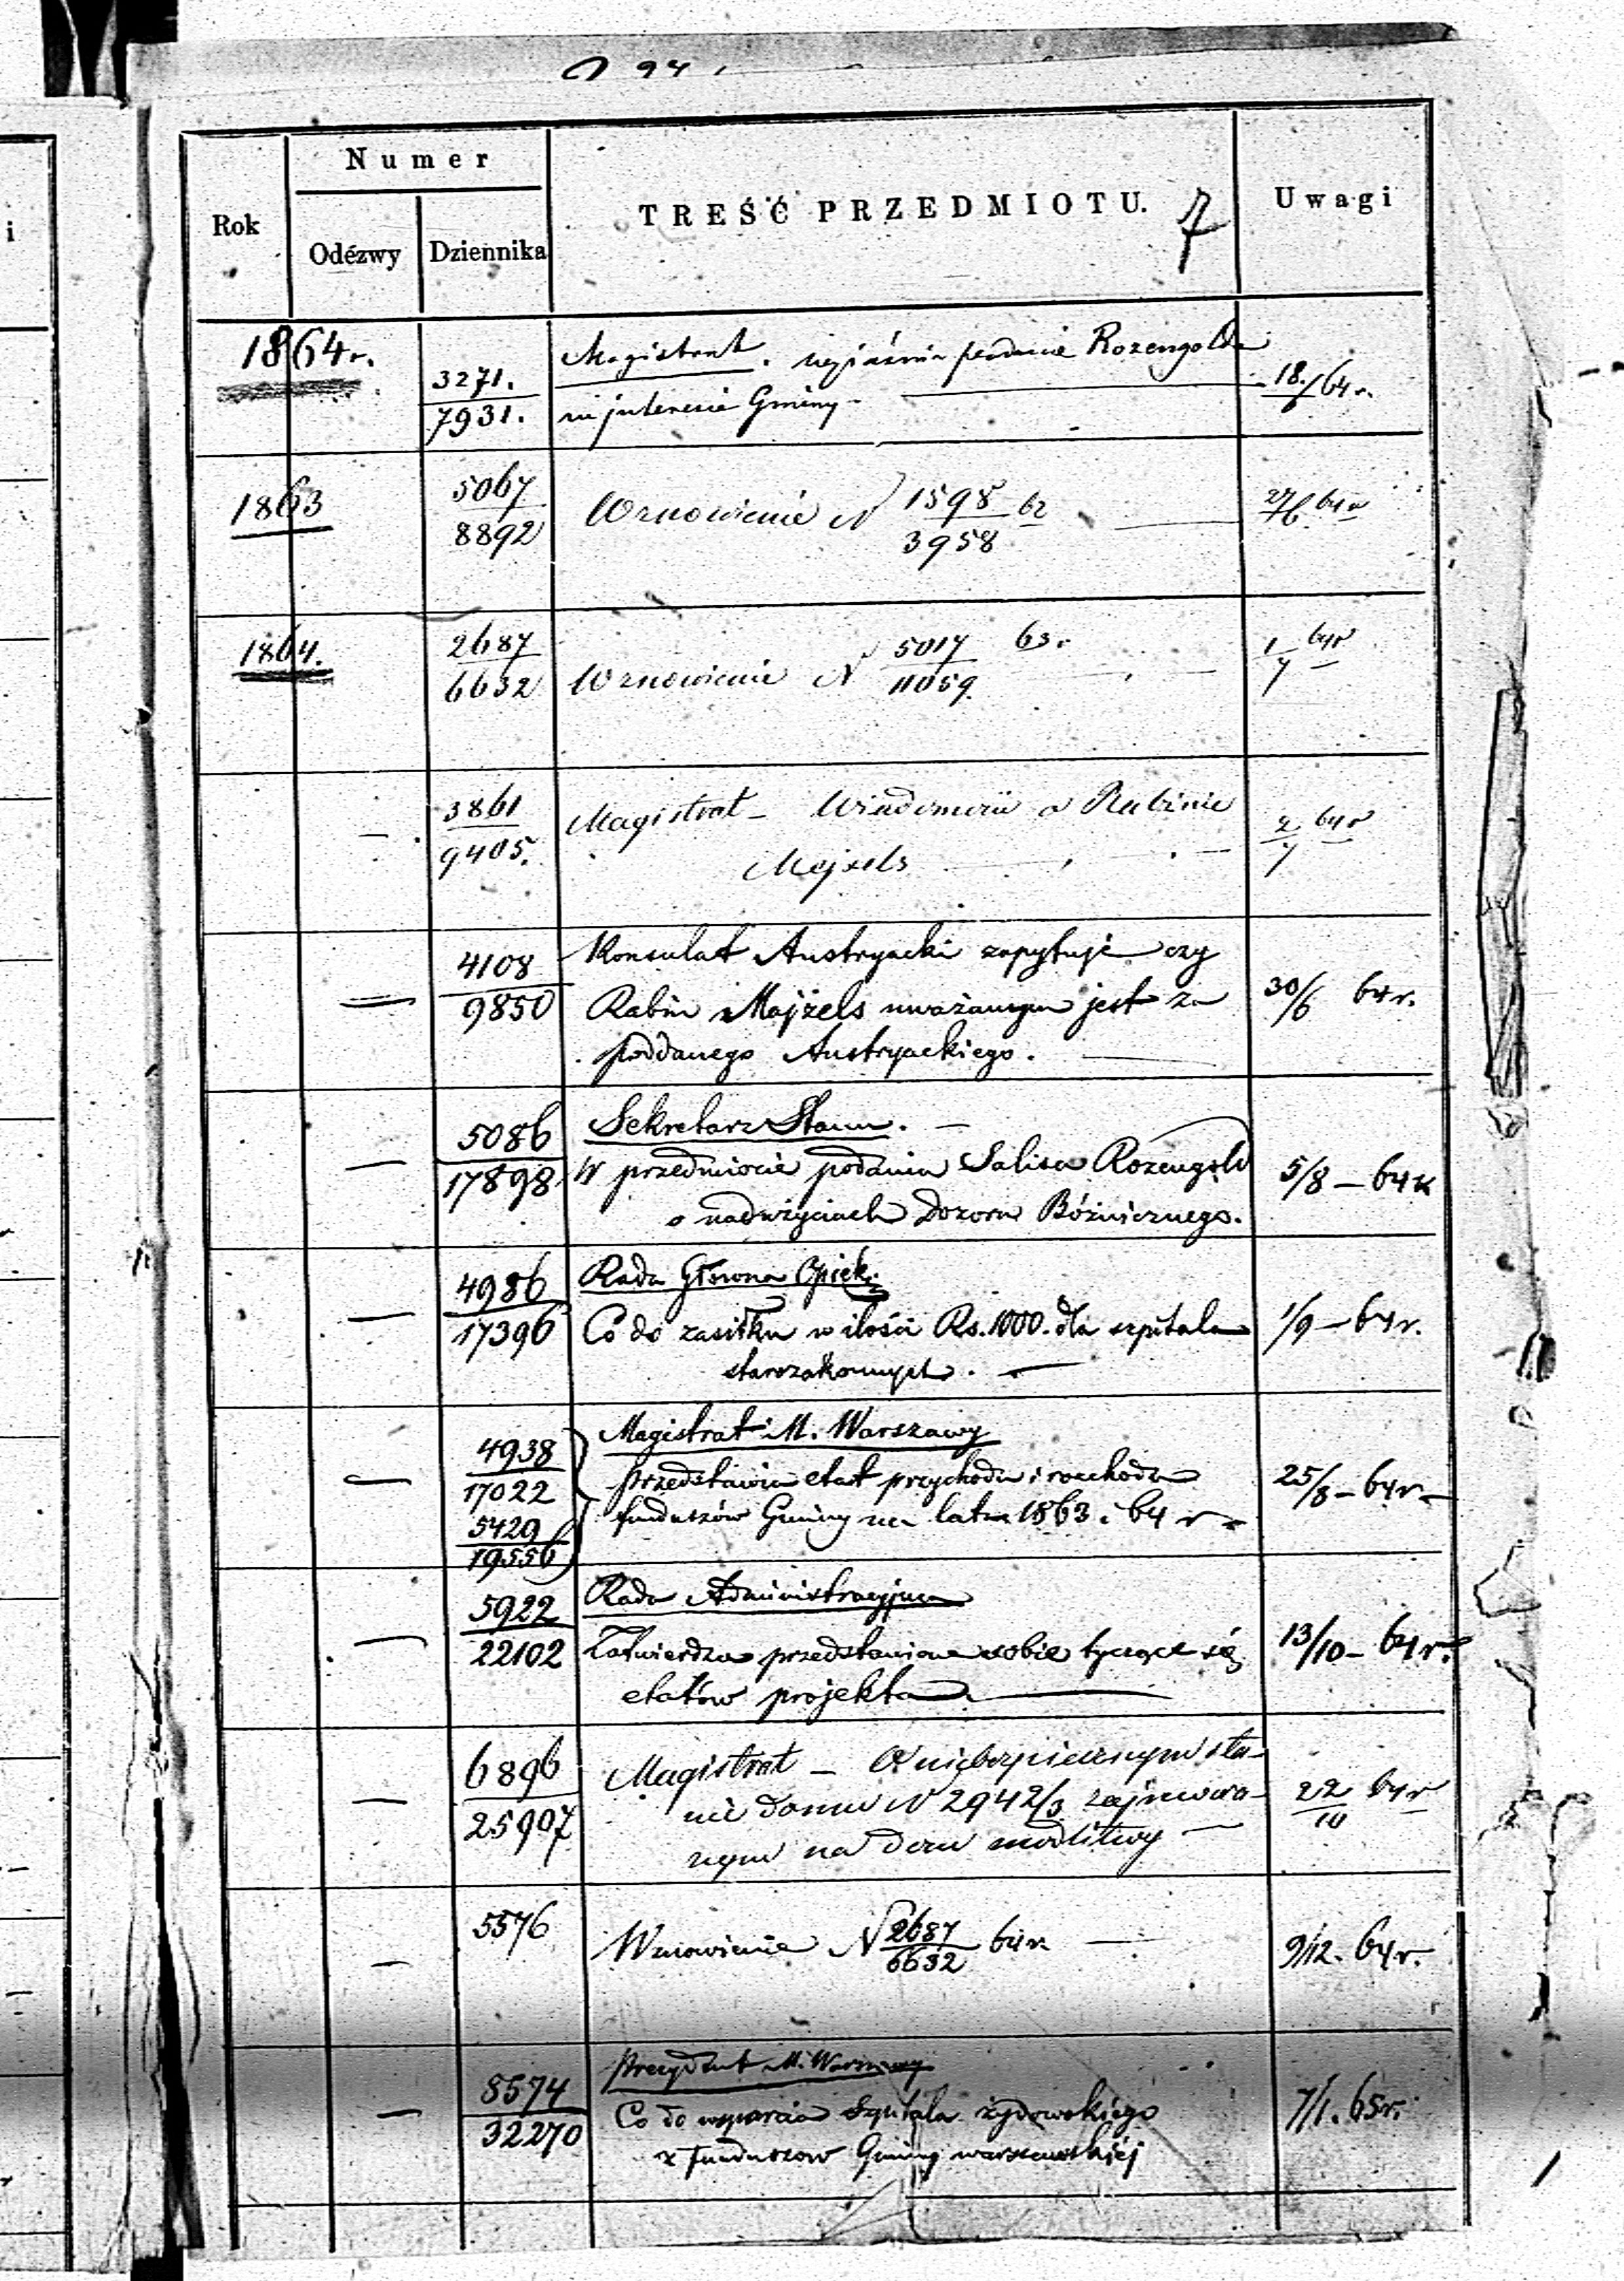 94
Numer
Rok
Odézwy
Dziennika
TREŚĆ PRZEDMIOTU.
7
Uwagi
1864r.
3271.
7931.
Magistrat. wyjaśnia podanie Rozengolda
w interesie Gminy
18/6 64r.
1863
5067
8892
Wznowienie N 1598/3958 62
27/6 64r
1864.
2687
6632
Wznowienie N 5017/11059 63r
1/7 64r
3861
9405.
Magistrat – Wiadomości o Rabinie
Majzels
2/7 64r
4108
9850
Konsulat Austryacki zapytuje czy
Rabin Majzels uważanym jest za
poddanego Austryackiego.
30/6 64r.
5086
17898
Sekretarz Stanu. –
W przedmiocie podania Rozengold
o nadużyciach Dozoru Bóżniczego.
5/8 – 64r
4986
17396
Rada Główna Opiek.
Co do zasiłku w ilości Rs. 1000. dla szpitala
starozakonnych. –
1/9 – 64r.
4938
17022
5429
19556
Magistrat M. Warszawy
przedstawia etat przychodu i rozchodu
funduszów Gminy na lata 1863 i 64 r
25/8 – 64r –
5922
22102
Rada Administracyjna
Zatwierdza przedstawione sobie tyczące się
etatów projekta.
13/10 – 64r.
6896
25907
Magistrat – O niebezpiecznym sta-
nie domu N 2942/3 zajmowa-
nym na dom modlitwy –
22/10 64r
5576
Wznowienie N 2687/6632 64r. –
9/12. 64r.
8574
32270
Prezydent M. Warszawy
Co do wsparcia Szpitala żydowskiego
z funduszow Gminy warszawskiéj
7/1. 65r.